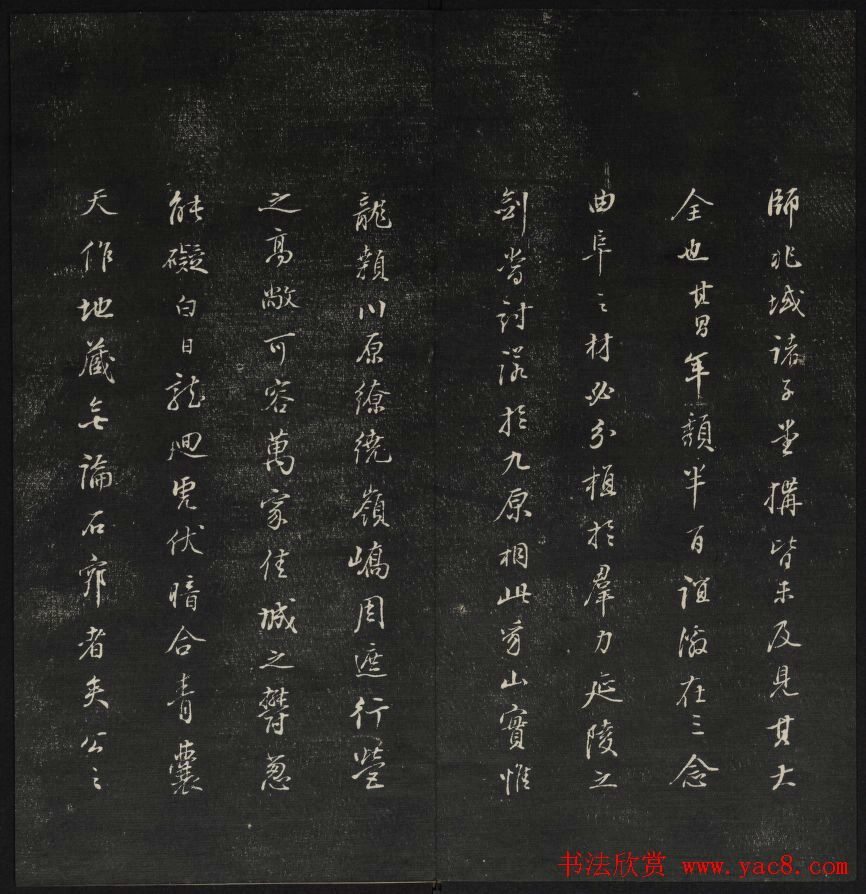 師兆域諸子堂搆皆未及見其大
全也其昌年頹半百誼激在三念
曲阜之材必分植於羣力延陵之
劍嘗討諾於九原相此穹山實惟
龍顙川原繚繞嶺嶠周遮行營
之高敞可容萬家佳城之鬱蔥
能礙白日龍迴虎伏暗合青囊
天作地藏無論石郭者矣公之
书法欣赏 www.yac8.com